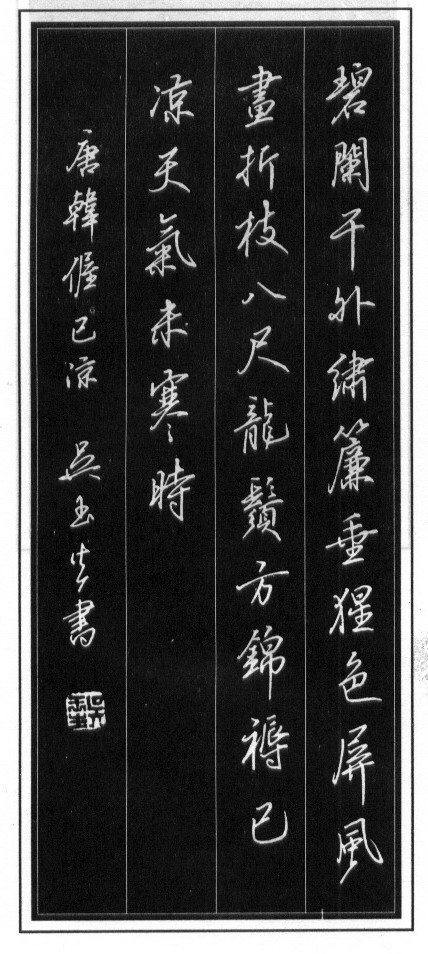 碧闌干外繡簾垂猩色屏風
畫折枝八尺龍鬚方錦褥已
凉天氣未寒時
唐韓偓已凉 吳玉生書